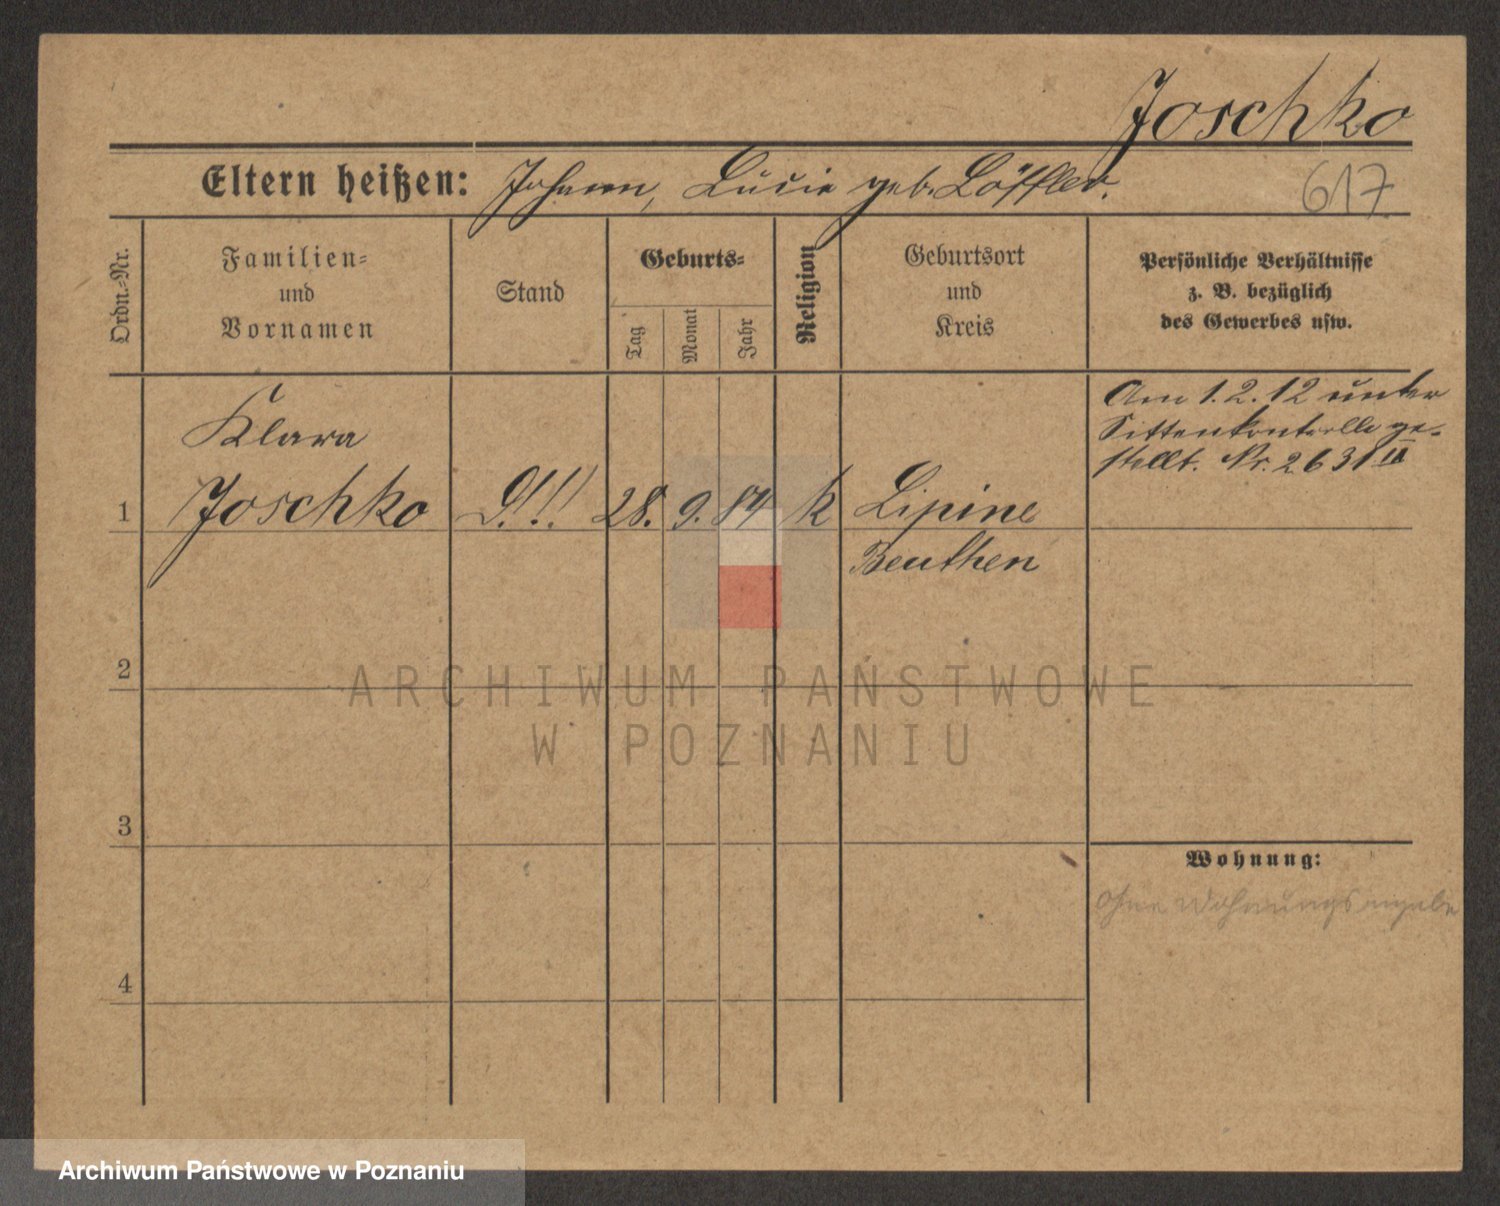 Joschko
Eltern heißen: Johann, Lucie geb. Löffler.
617
Ordn.-Nr.
Familien-
und
Vornamen
Stand
Geburts-
Tag
Monat
Jahr
Religion
Geburtsort
und
Kreis
Persönliche Verhältnisse
z. B. bezüglich
des Gewerbes usw.
Am 1.2.12 unter
Sittenkontrolle ge-
stellt. Nr. 2631 II
Klara
1 Joschko D!!! 28. 9. 84 k Lipine
Beuthen
2
ARCHIWUM PAŃSTWOWE
W POZNANIU
3
Wohnung:
ohne Wohnungsangabe
4
Archiwum Państwowe w Poznaniu